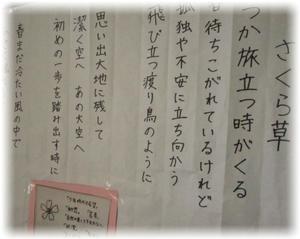 さくら草
つか旅立つ時がくる
待ちこがれているけれど
孤独や不安に立ち向かう
飛び立つ渡り鳥のように
思い出大地に残して
潔く空へ あの大空へ
初めの一歩を踏み出す時に
春まだ冷たい風の中で